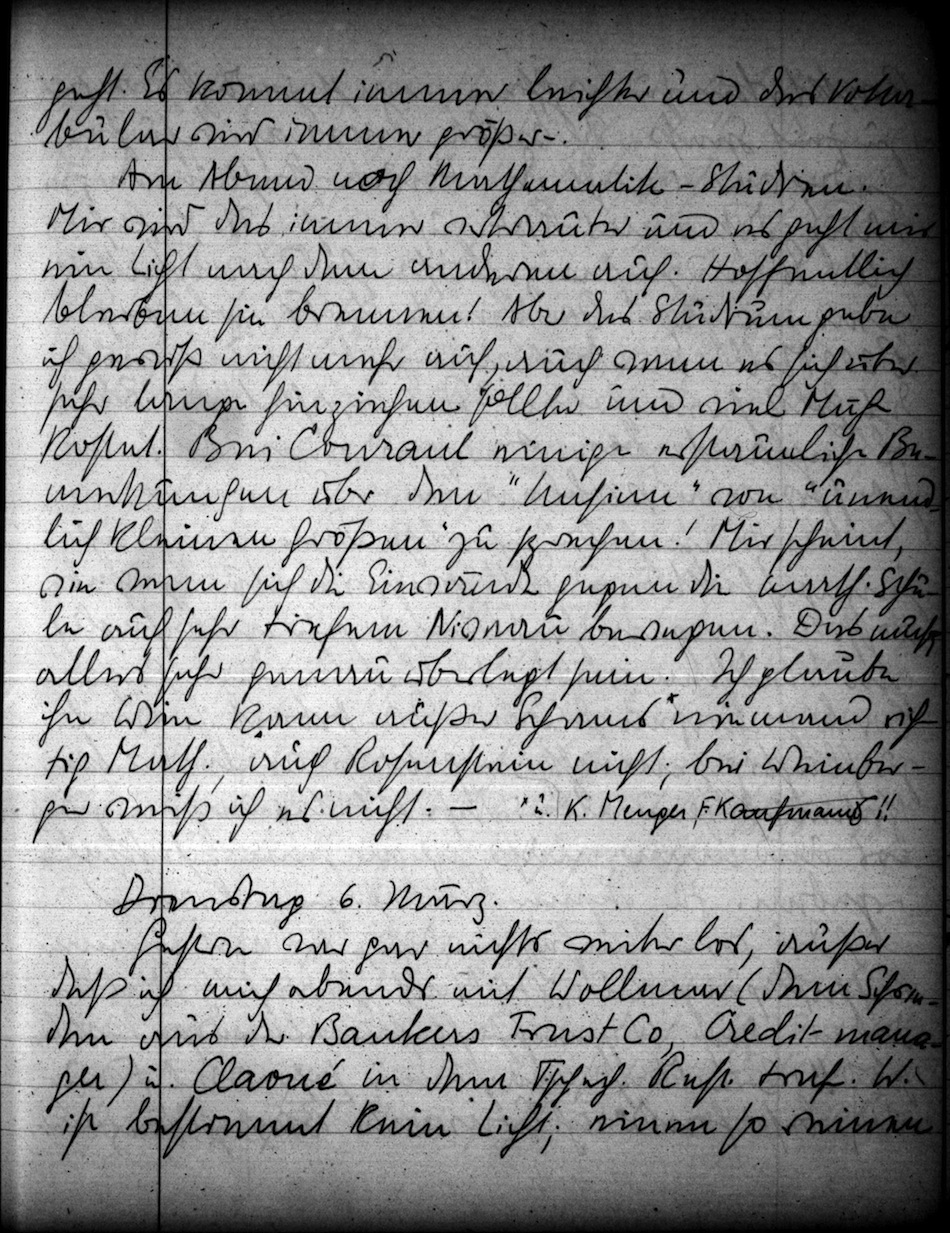 geht. Es kommt immer leichter und das Voka-
bular wird immer größer.
Am Abend noch Mathematik-Studium.
Mir wird das immer vertrauter und es geht mir
ein Licht nach dem anderen auf. Hoffentlich
bleiben sie brennen! Aber das Studium gebe
ich gewiß nicht mehr auf, auch wenn es sich über
sehr lange hinziehen sollte und viel Mühe
kostet. Bei Courant einige erstaunliche Be-
merkungen über den "Unsinn" von "unend-
lich kleinen Größen" zu sprechen! Mir scheint,
wie wenn sich die Einwände gegen die math. Schu-
le auf sehr tiefem Niveau bewegen. Das muß
alles sehr genau überlegt sein. Ich glaube
in Wien kann außer Schams* niemand rich-
tig Math., auch Rosenstein nicht; bei Weinber-
ger weiß ich es nicht. —
* u. K. Menger, F. Kaufmann!!
Dienstag 6. März.
Gestern war gar nichts weiter los, außer
daß ich mich abends mit Wollmar (dem Schwe-
den aus der Bankers Trust Co, Credit-mana-
ger) u. Claoué in dem Tschech. Rest. traf. W.
ist bestimmt kein Licht; einen so